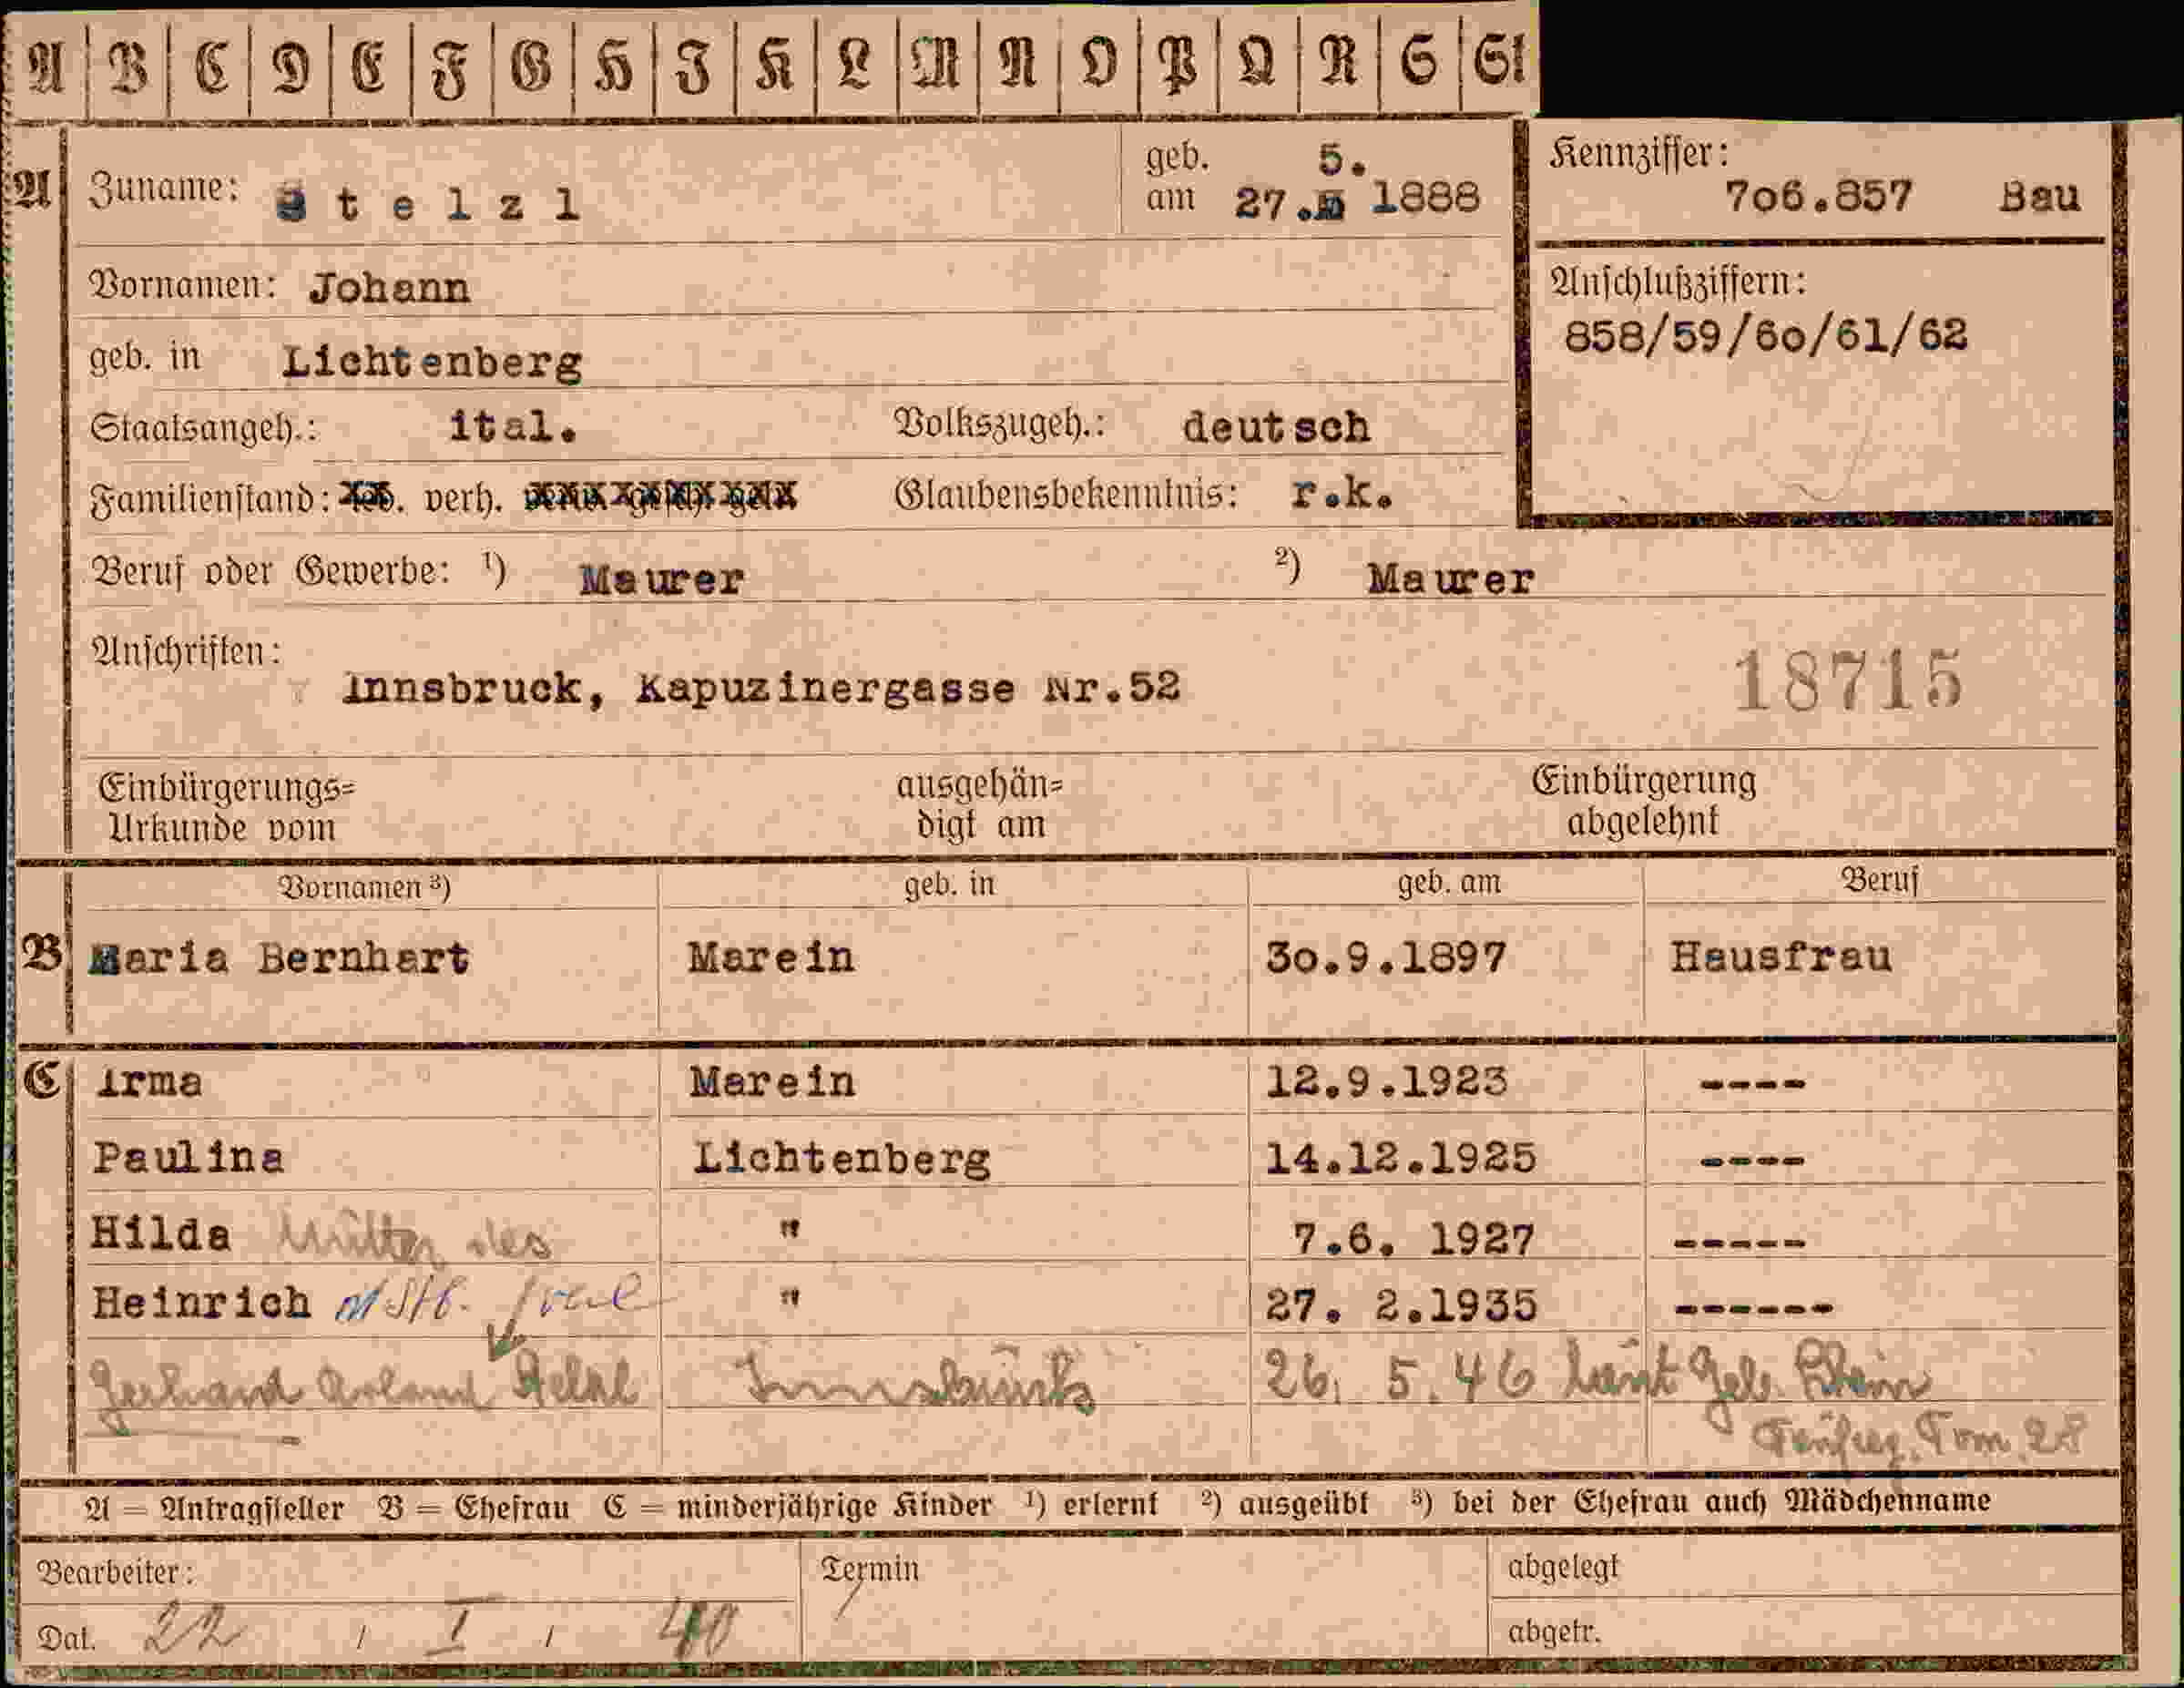 A B C D E F G H J K L M N O P Q R S St
A Zuname: Stelzl geb. am 27. 5. 1888 Kennziffer: 706.857 Bau
Vornamen: Johann Anschlußziffern:
858/59/60/61/62
geb. in Lichtenberg
Staatsangeh.: ital. Volkszugeh.: deutsch
Familienstand: verh. Glaubensbekenntnis: r.k.
Beruf oder Gewerbe: 1) Maurer 2) Maurer
Anschriften:
Innsbruck, Kapuzinergasse Nr.52 18715
Einbürgerungs= ausgehän= Einbürgerung
Urkunde vom digt am abgelehnt
Vornamen 3) geb. in geb. am Beruf
B Maria Bernhart Marein 30.9.1897 Hausfrau
C Irma Marein 12.9.1923 ----
Paulina Lichtenberg 14.12.1925 ----
Hilda Mutter des " 7.6. 1927 -----
Heinrich " 27. 2.1935 ------
Gerhard Stelzl Innsbruck 26. 5. 46 laut Geb. Schein
A = Antragsteller B = Ehefrau C = minderjährige Kinder 1) erlernt 2) ausgeübt 3) bei der Ehefrau auch Mädchenname
Bearbeiter: Termin abgelegt
Dat. 22 / I / 40 abgetr.